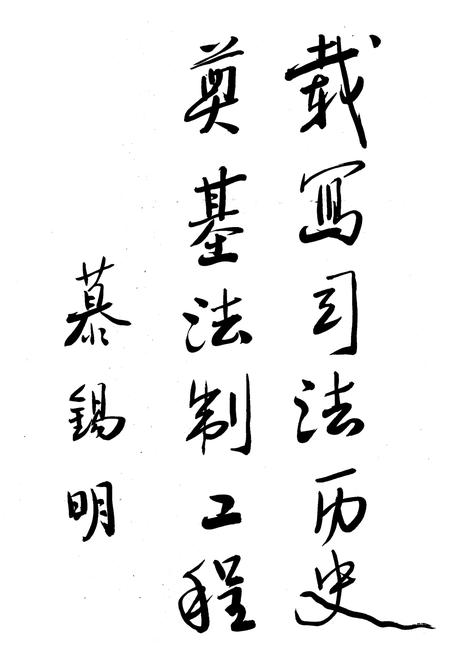 载写司法历史
奠基法制工程
慕锡明